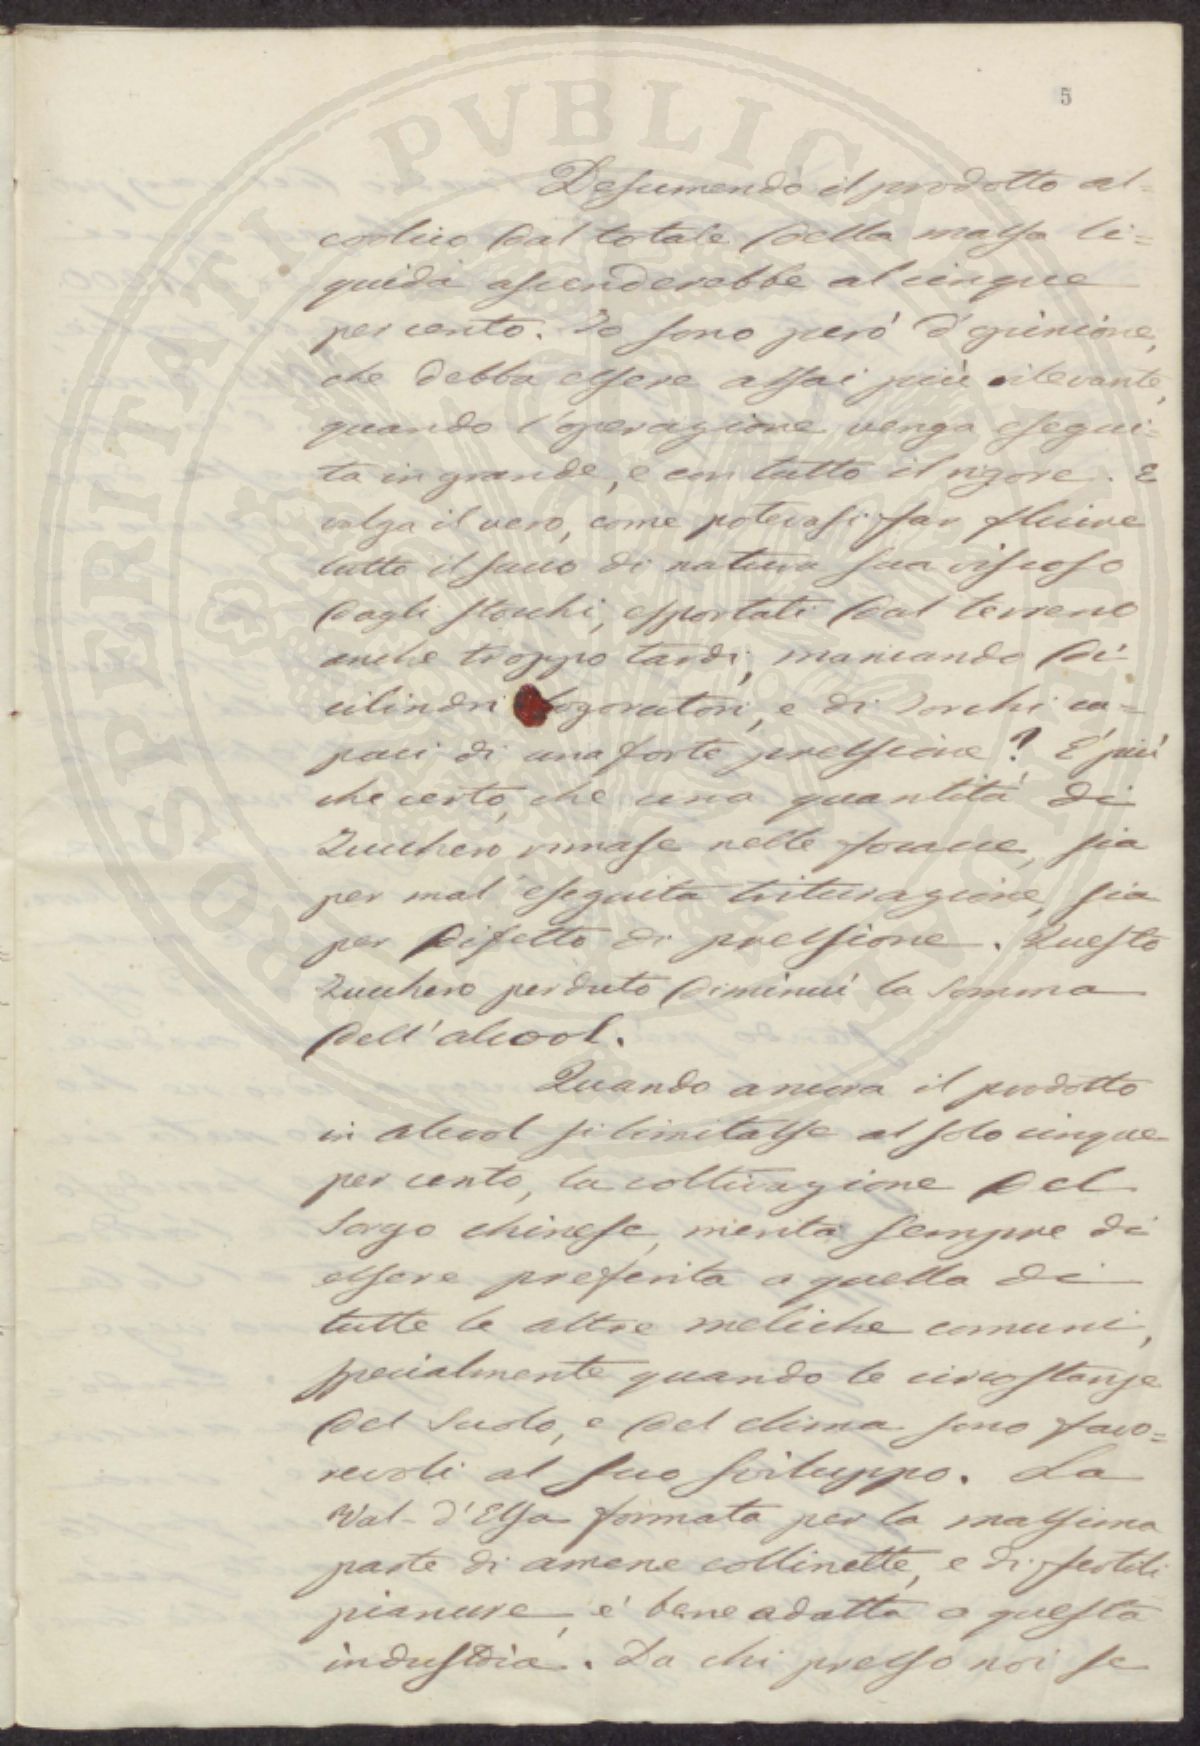 5
PROSPERITATI PVBLICAE AVGENDAE
Desumendo il prodotto al=
coolico dal totale della massa li=
quida ascenderebbe al cinque
per cento. Io sono però d'opinione,
che debba essere assai più rilevante,
quando l'operazione venga esegui=
ta in grande, e con tutto il rigore. E
valga il vero, come potevasi far fluire
tutto il succo di natura sua viscoso
dagli stocchi, esportati dal terreno
anche troppo tardi, mancando di
cilindri, e di Torchi ca=
paci di una forte pressione? E' più
che certo, che una quantità di
Zucchero rimase nelle focacce, sia
per mal' eseguita triturazione, sia
per difetto di pressione. Questo
Zucchero perduto diminuì la Somma
dell'alcool.
Quando ancora il prodotto
in alcool si limitasse al solo cinque
per cento, la coltivazione del
Sorgo chinese, merita sempre di
essere preferita a quella di
tutte le altre meliche comuni,
specialmente quando le circostanze
del Suolo, e del clima sono favo=
revoli al suo sviluppo. La
Val-d'Elsa formata per la massima
parte di amene collinette, e di fertili
pianure, è bene adatta a questa
industria. Da chi presso noi se